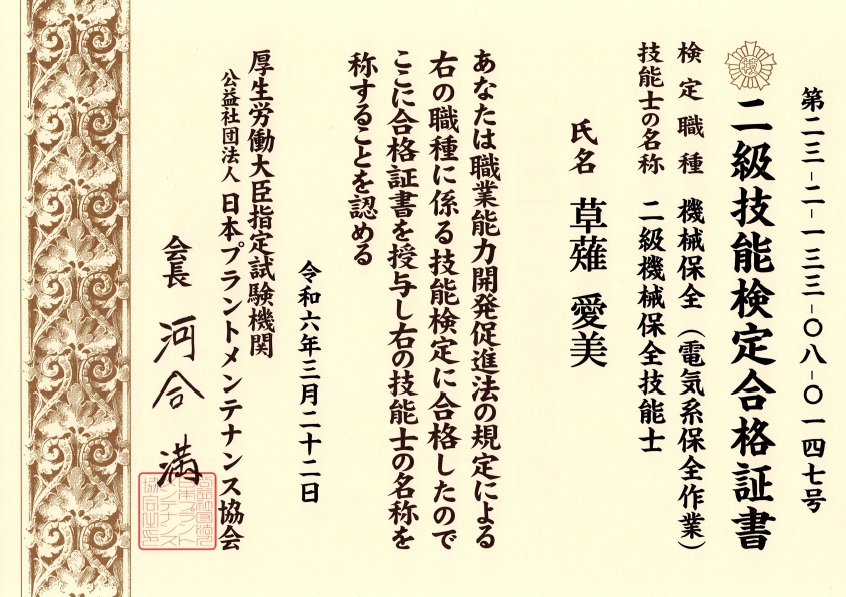 第二三-二-一三三-〇八-〇一四七号
二級技能検定合格証書
検定職種 機械保全(電気系保全作業)
技能士の名称 二級機械保全技能士
氏名 草薙 愛美
あなたは職業能力開発促進法の規定による
右の職種に係る技能検定に合格したので
ここに合格証書を授与し右の技能士の名称を
称することを認める
令和六年三月二十二日
厚生労働大臣指定試験機関
公益社団法人 日本プラントメンテナンス協会
会長 河合 満